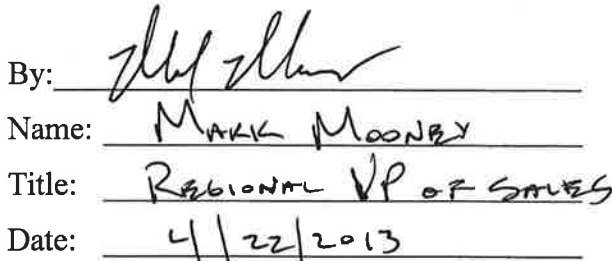 By:
Name: MARK MOONEY
Title: REGIONAL VP OF SALES
Date: 4/22/2013